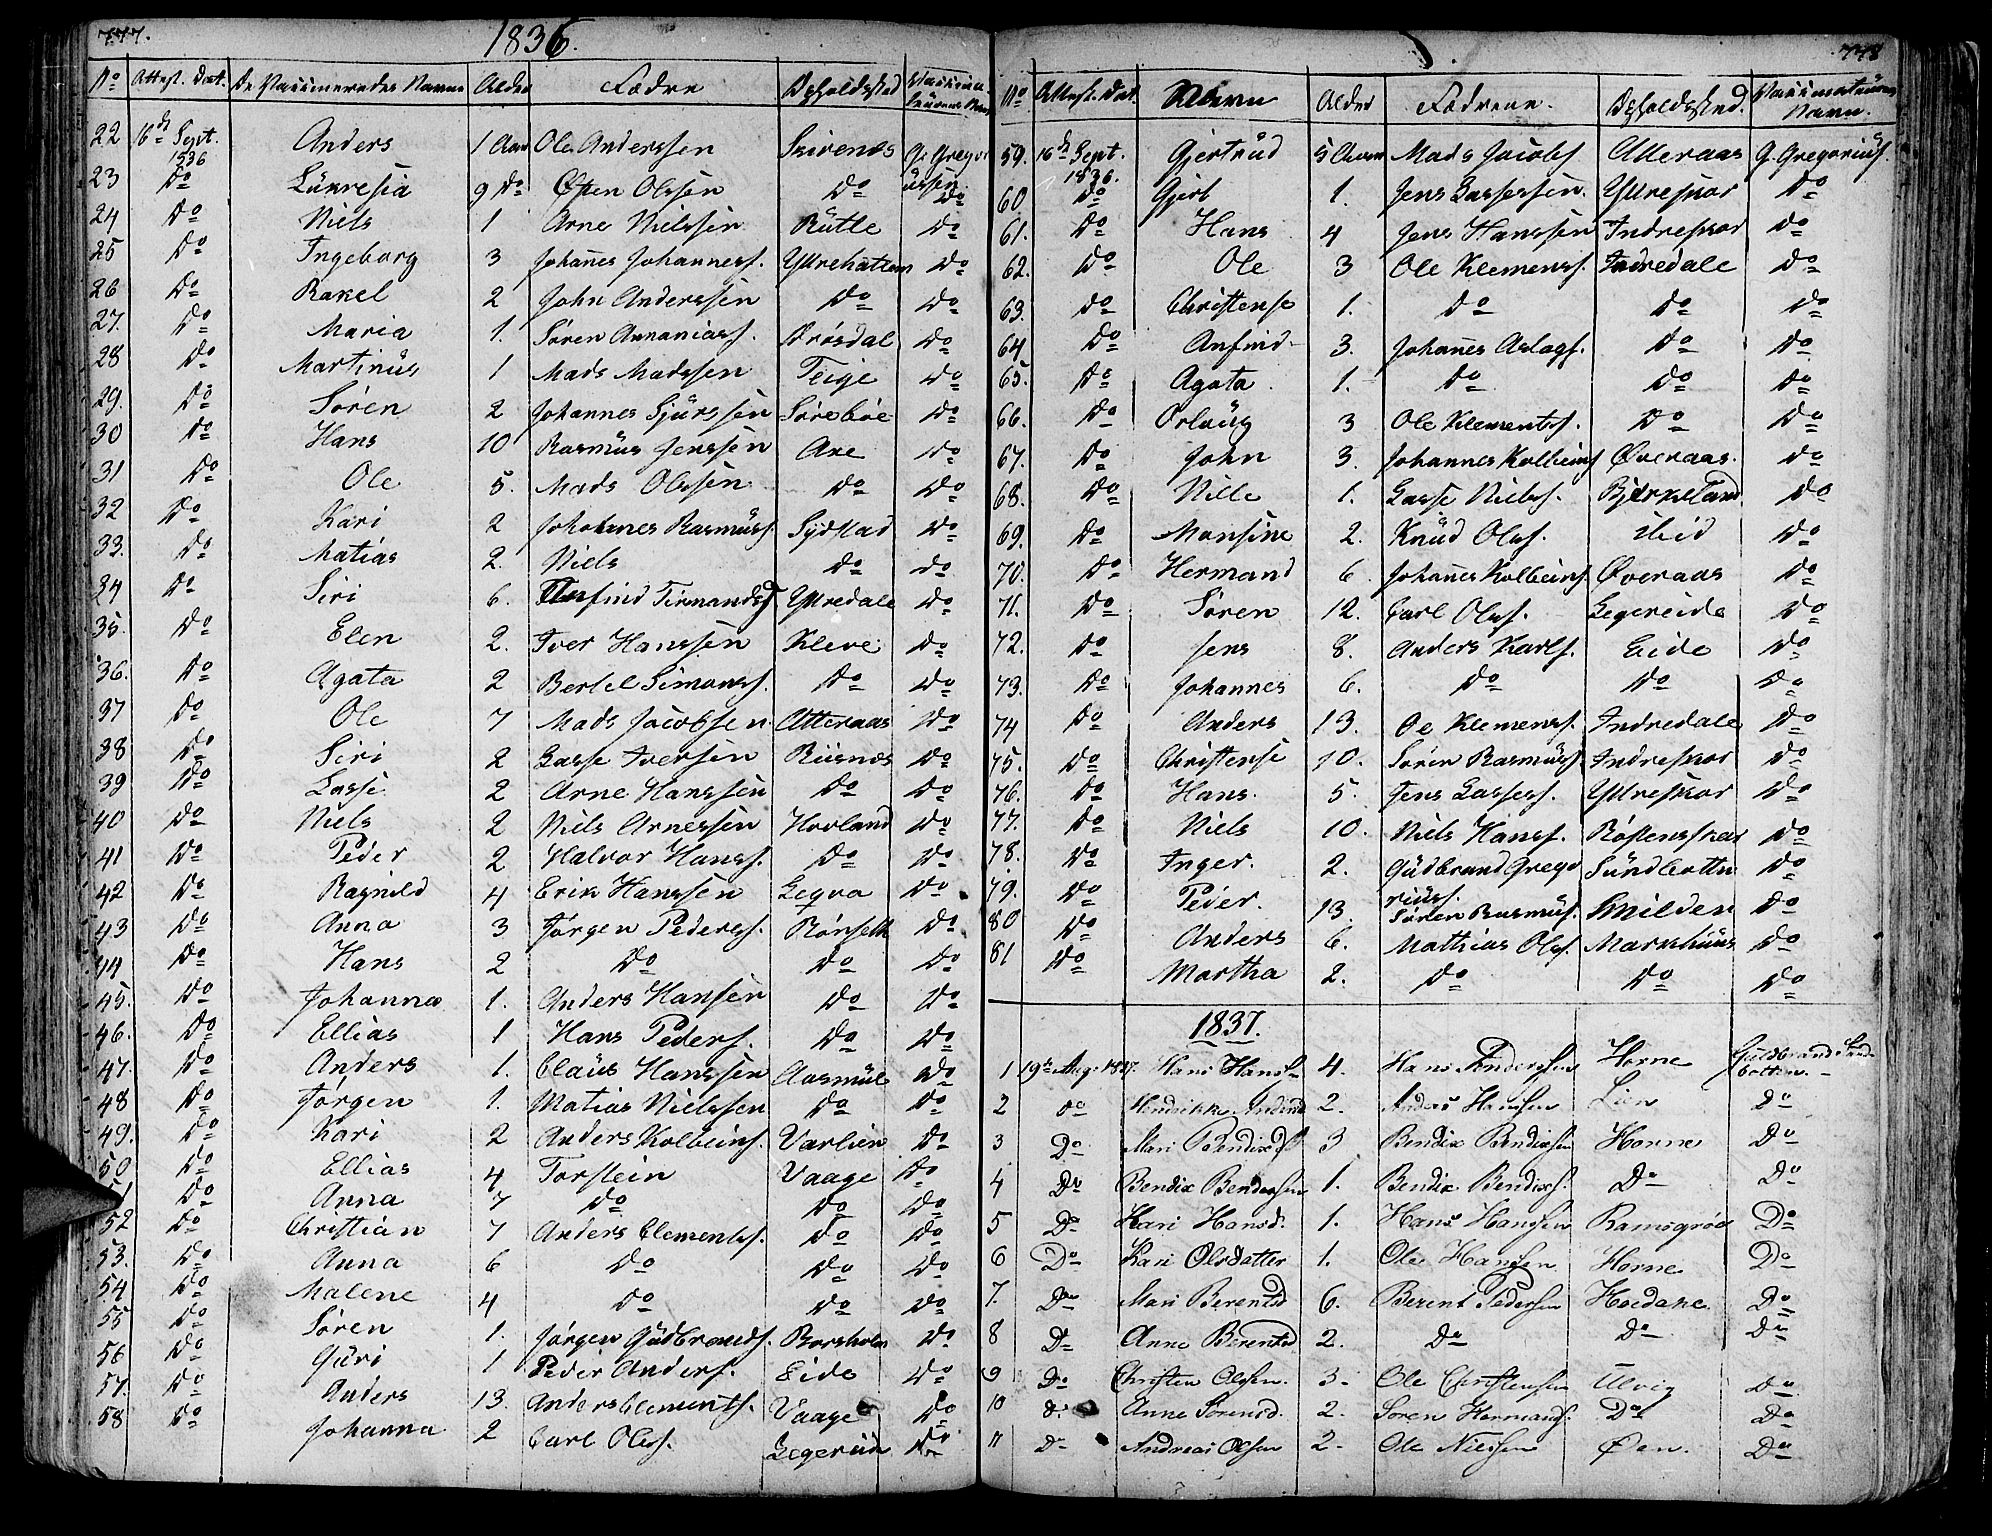 777.
1836.
No Attest. Dat. De Vaccineredes Navne Alder Fædre Opholdssted Vaccinateurens Navn
22 16de Sept. 1836 Anders 1 Aar Ole Anderssen Skirenes G. Gregoriussen
23 Do Lükresia 9 Do Often Olssen Do Do
24 Do Niels 1 Arne Nielssen Rütle Do
25 Do Ingeborg 3 Johañes Johanness. Yttrehatlem Do
26 Do Rakel 2 John Anderssen Do Do
27. Do Maria 1. Søren Annaniass. Drøsdal Do
28 Do Martinüs 1 Mads Madssen Teige Do
29. Do Søren 2 Johannes Sjürssen Sørebøe Do
30 Do Hans 10 Rasmüs Jenssen Axe Do
31 Do Ole 5. Mads Olssen Do Do
32 Do Kari 2 Johannes Rasmüss. Sydstad Do
33. Do Matias 2. Niels Do Do
34 Do Siri 6. Anfind Tirmandss. Yttredale Do
35. Do Elen 2. Iver Hanssen Kleve Do
36. Do Agata 2 Bertel Simonss. Do Do
37 Do Ole 7 Mads Jacobsen Atteraas Do
38 Do Siri 2 Lasse Iversen Riisnes Do
39 Do Lasse 2 Arne Hanssen Do Do
40 Do Niels 2 Niels Arnessen Hovland Do
41 Do Peder 2 Halvor Hanss. Do Do
42 Do Ragnild 4 Erik Hanssen Leqva Do
43 Do Anna 3 Jørgen Pederss. Rønseth Do
44 Do Hans 2 Do Do Do
45. Do Johanna 1. Anders Hansen Do Do
46. Do Ellias 1 Hans Peders. Do Do
47. Do Anders 1. Claüs Hanssen Aasmül Do
48 Do Jørgen 1. Matias Nielssen Do Do
49. Do Kari 2 Anders Kolbeins. Varlien Do
50 Do Ellias 4 Torstein Vaage Do
51 Do Anna 7 Do Do Do
52 Do Christian 7 Anders Clementss. Do Do
53. Do Anna 6 Do Do Do
54 Do Malene 4 Do Do Do
55 Do Søren 1. Jørgen Güdbrands. Borsholm Do
56 Do Güri 1 Peder Anders. Eide Do
57. Do Anders 13. Anders Clements. Vaage Do
58 Do Johanna 2 Carl Olss. Legereid Do
778
No Attest. Dat. Navn Alder Fædrene. Opholdssted. Vaccinateürens Navn.
59. 16de Sept. 1836. Gjertrüd 5 Aar Mads Jacobs. Atteraas G. Gregoriüs.
60 Do Gjert 1. Jens Lassessen. Yttreskor Do
61. Do Hans 4 Jens Hanssen Indreskor Do
62. Do Ole 3 Ole Klemenss. Indredale Do
63. Do Christense 1. Do Do Do
64. Do Anfind 3. Johañes Aslags. Do Do
65. Do Agata 1. Do Do Do
66. Do Orlaüg 3 Ole Klementss. Do Do
67. Do John 3. Johannes Kolbeins. Øveraas. Do
68. Do Nille 1. Lasse Nielss. Bjerkeland Do
69. Do Monsine 2. Knüd Olss. ibid Do
70. Do Hermand 6. Johañes Kolbeins. Øveraas Do
71. Do Søren 12. Carl Olss. Legereide Do
72. Do Jens 8. Anders Karls. Eide Do
73. Do Johannes 6. Do Do Do
74 Do Anders 13. Oe Klemenss. Indredale Do
75. Do Christense 10. Søren Rasmüss. Indreskor Do
76. Do Hans. 5. Jens Lassess. Yttreskor Do
77. Do Niels 10. Niels Hanss. Røstenskar Do
78. Do Inger. 2. Güdbrand Gregoriüss. Sündbotten Do
79. Do Peder. 13. Søren Rasmüs. Smilden Do
80 Do Anders 6. Mathias Olss. Markhüüs Do
81 Do Martha 2. Do Do Do
1837.
1 19de Aug. 1837. Hans Hanss. 4. Hans Anderssen Horne Güldbrand Sundbotten.
2 Do Hendrikke Andersd. 2. Anders Hanssen Lien Do
3 Do Mari Bendixd. 3 Bendix Bendixsen Horne Do
4 Do Bendix Bendixsen 1. Bendix Bendixs. Do Do
5 Do Kari Hansd. 1. Hans Hanssen Ramsgrøe Do
6 Do Kari Olsdatter 1. Ole Hansen Horne Do
7. Do Mari Berentsd. 6. Berent Pedersen Do
8 Do Anne Berentsd 2. Do Do Do
9 Do Christen Olssen. 3. Ole Christensen Ulvig Do
10 Do Anne Sørensd. 2. Søren Hermands. Do Do
11 Do Andreas Olsen 2. Ole Nielsen Øen. Do